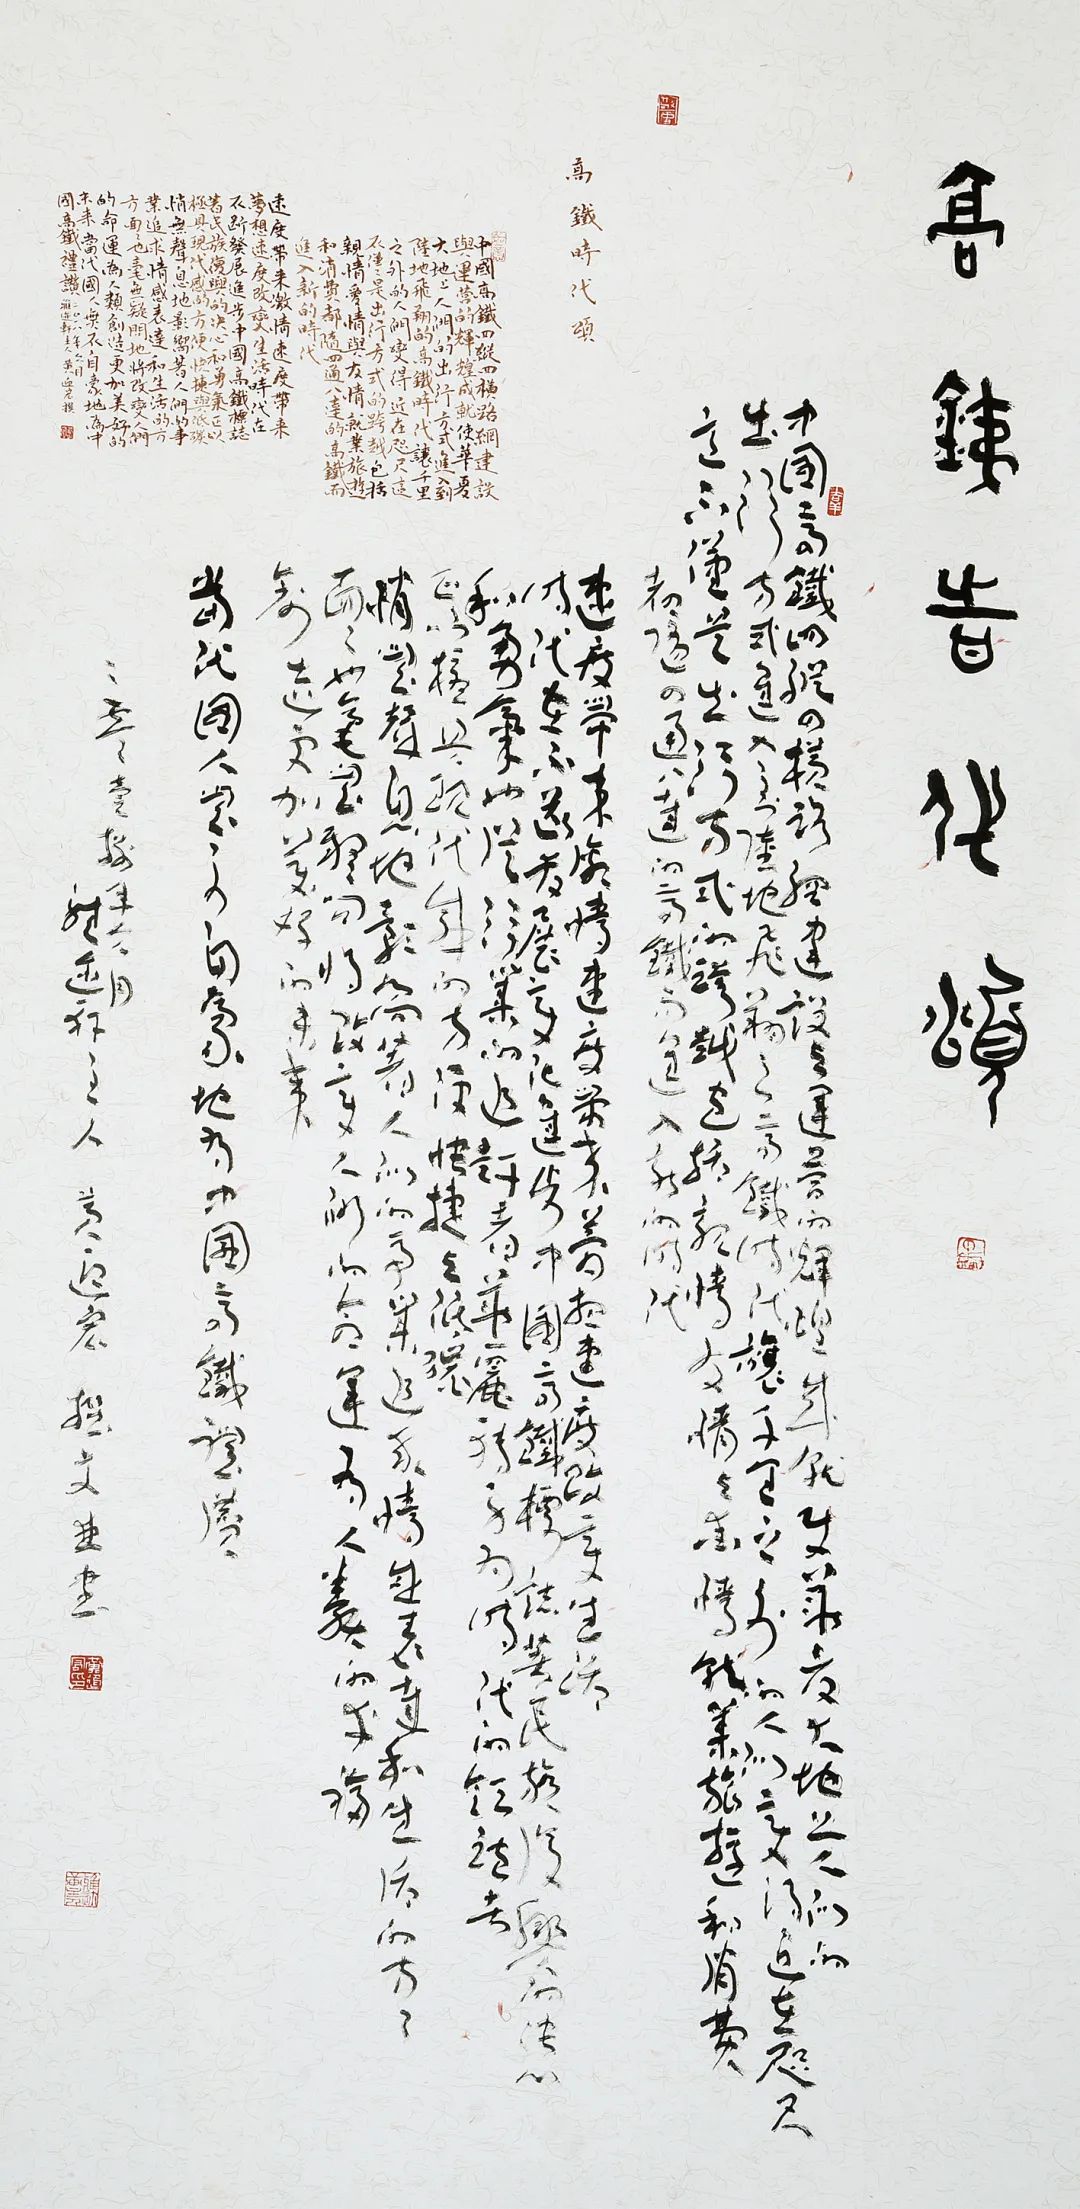 高鐵时代頌
中國高鐵四縱四橫路網建設與運營的輝煌成就使華夏大地上人们的
出行方式進入到陸地飛翔之高鐵时代讓千里之外的人们变得近在咫尺
這不僅是出行方式的跨越包括親情友情与愛情就業旅遊和消費
都隨四通八達的高鐵而進入新的时代
速度带来激情速度带来夢想速度改变生活
时代在不断發展变化進步中國高鐵標誌著民族復興的决心
和勇氣
正以極具现代感的方便快捷与低碳
悄無聲息地影响着人们的事業追求情感表達和生活的方方
面面也毫無疑问將改变人们的命運为人類的幸福
創造更加美好的未来
當代國人無不自豪地为中國高鐵禮讚
主人 黄 宏 撰文並書
高鐵時代頌
中國高鐵四縱四橫路網建設
與運營的輝煌成就使華夏
大地上人們的出行方式進入到
陸地飛翔的高鐵時代讓千里
之外的人們變得近在咫尺這
不僅是出行方式的跨越包括
親情愛情與友情就業旅遊
和消費都隨四通八達的高鐵而
進入新的時代
速度帶来激情速度帶来
夢想速度改變生活時代在
不断發展進步中國高鐵標誌
著民族復興的决心和勇氣正以
極具現代感的方便快捷與低碳
悄無聲息地影響著人們的事
業追求情感表達和生活的方
方面面也毫無疑問地將改變人們
的命運為人類創造更加美好的
未来當代國人無不自豪地為中
國高鐵禮讚